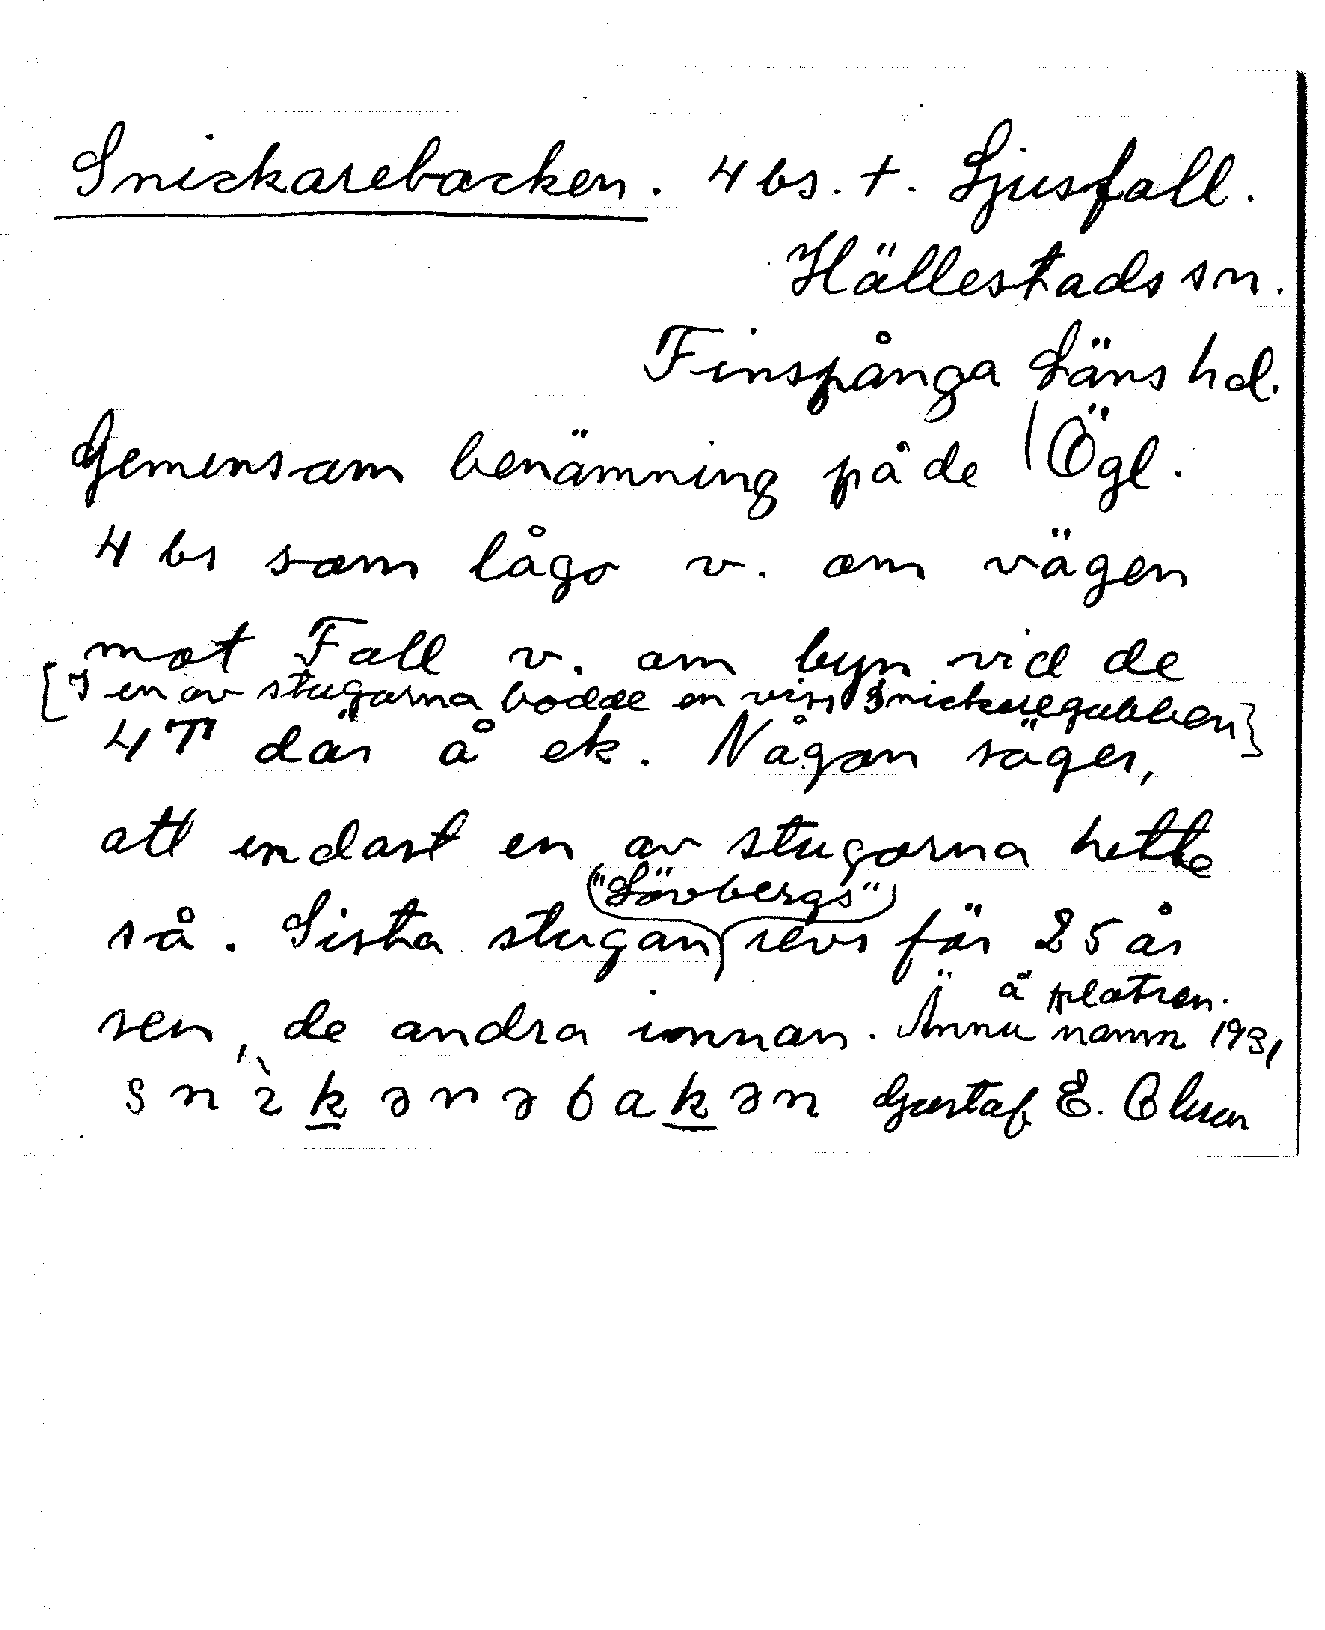 Snickarebacken. 4 bs. +. Ljusfall.
Hällestads sn.
Finspånga Läns hd.
Gemensam benämning på de (Ögl.
4 bs som lågo v. om vägen
mot Fall v. om byn vid de
[I en av stugorna bodde en viss Snickaregubben]
4 T där å ek. Någon säger,
att endast en av stugorna hette
("Lövbergs")
så. Sista stugan revs för 25 år
å platsen.
sen, de andra innan. Ännu namn 1931
snìkərəbakən Gustaf E. Olson